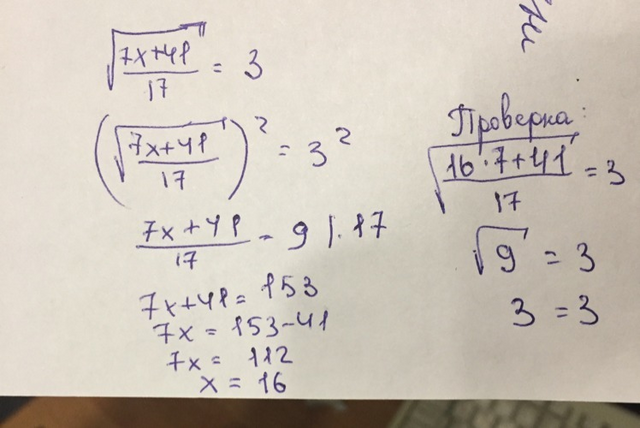 √((7x+41)/17) = 3
(√((7x+41)/17))² = 3²
(7x+41)/17 = 9 |·17
7x+41 = 153
7x = 153-41
7x = 112
x = 16
Проверка:
√((16·7+41)/17) = 3
√9 = 3
3 = 3